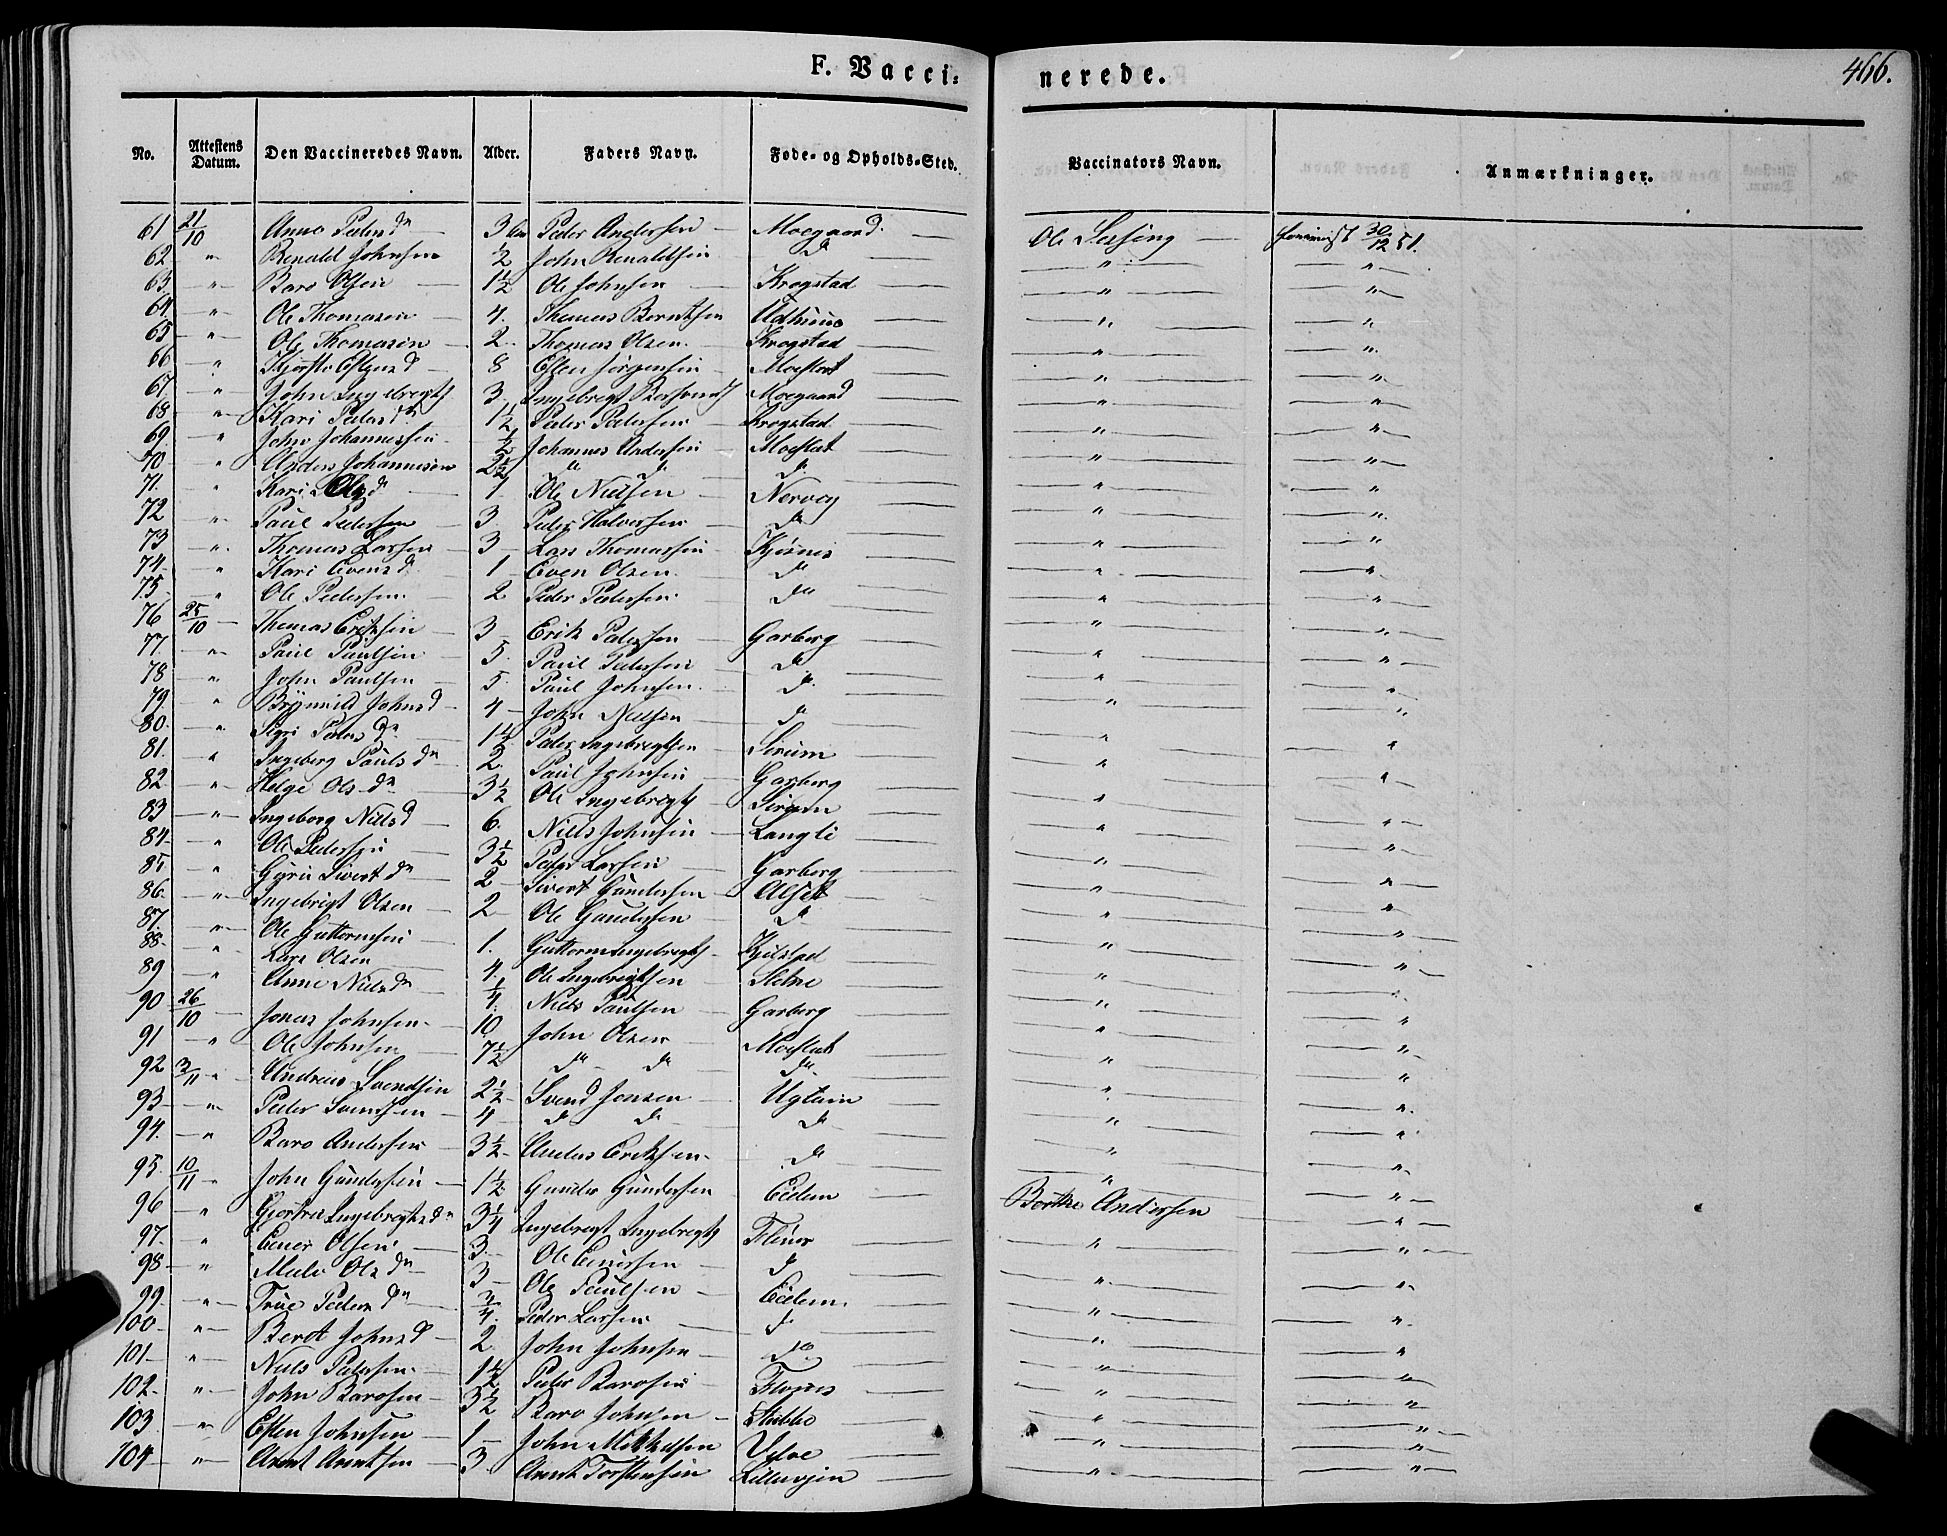 F. Vacci= nerede. 466.
No. Attestens Datum. Den Vaccineredes Navn. Alder. Faders Navn. Føde- og Opholds-Sted. Vaccinators Navn. Anmærkninger.
61 21/10 Anne Pedersdr 3 Aar Peder Andersen Moegaard. Ole Sesseng 30/12 51.
62 " Renald Johnsen 1/2 John Renaldsen do " "
63 " Baro Olsen 1 1/2 Ole Johnsen Krogstad " "
64 " Ole Thomasen 4. Thomas Berntsen " "
65 " Ole Thomasen 2 Thomas Olsen Krogstad " "
66 " Estensd 8 Esten Jörgensen Moeslet " "
67 " John Ingebrigts 3 Ingebrigt Moegaard " "
68 " Kari Pedersdr 1 1/2 Peder Pedersen Krogstad " "
69 " John Johannessen 1/2 Johannes Andersen Moeslet " "
70 " Anders Johannesen 2 1/2 do do do " "
71. " Kari Olsdr 1 Ole Nielsen Nervog " "
72 " Paul Pedersen 3 Peder Halvorsen do " "
73 " Thomas Larsen 3 Lars Thomassen Kjösnes " "
74 " Kari Evensd 1 Even Olsen do " "
75. " Ole Pedersen 2 Peder Pedersen do " "
76 25/10 Thomas Eriksen 3 Erik Pedersen Garberg "
77. " Paul Paulsen 5. Paul Pedersen do " "
78 " John Paulsen 5. Paul Johnsen do " "
79 " Johnsd 4 John Nielsen do " "
80. " Sigri Pedersdr 1 1/2 Peder Ingebrigtsen Serum " "
81. " Ingeberg Paulsdr 2. Paul Johnsen Garberg " "
82 " Helge Olsdr 3 1/2 Ole Ingebrigts Serum "
83 " Ingeborg Nielsd 6. Niels Johnsen Langli " "
84 " Ole Pedersen 3 1/2 Peder Larsen Garberg "
85 " Guru Sivertdr 2 Sivert Gundersen Alset " "
86. " Ingebrigt Olsen 2 Ole Gundersen do " "
87. " Ole Guttormsen 1. Guttorm Ingebrigts Kjelstad " "
88. " Lars Olsen 4. Ole Ingebrigtsen Selne " "
89 " Anne Nielsdr 1/4. Niels Paulsen Garberg " "
90 26/10 Jonas Johnsen 10 John Olsen Moeslet " "
91 " Ole Johnsen 7 1/2 do do do " "
92 3/11 Andreas Svendsen 2 1/2 Svend Jonsen Ugluin " "
93 " Peder Svendsen 4 do do do " "
94. " Baro Andersen 3 1/2 Anders Eriksen do " "
95. 10/11 John Gundersen 1 1/2 Gunder Gundersen Eidem Berthe Andersen "
96 " Gjertru Ingebrigtsdr 3 1/4 Ingebrigt Ingebrigts Flöner "
97. " Ener Olsen 3 Ole Enersen do " "
98 " Olsdr 3 Ole Paulsen Eidem. " "
99 " True Pedersdr 3/4. Peder Larsen do " "
100 " Berit Johnsd 2 John Johnsen do " "
101 " Niels Pedersen 1 1/2 Peder Barosen Flones " "
102. " John Barosen 3 1/2 Baro Johnsen Stubbe " "
103 " Esten Johnsen 1 John Mikkelsen " "
104 " Arent Arentsen 3 Arent Torstensen Lillevjen " "